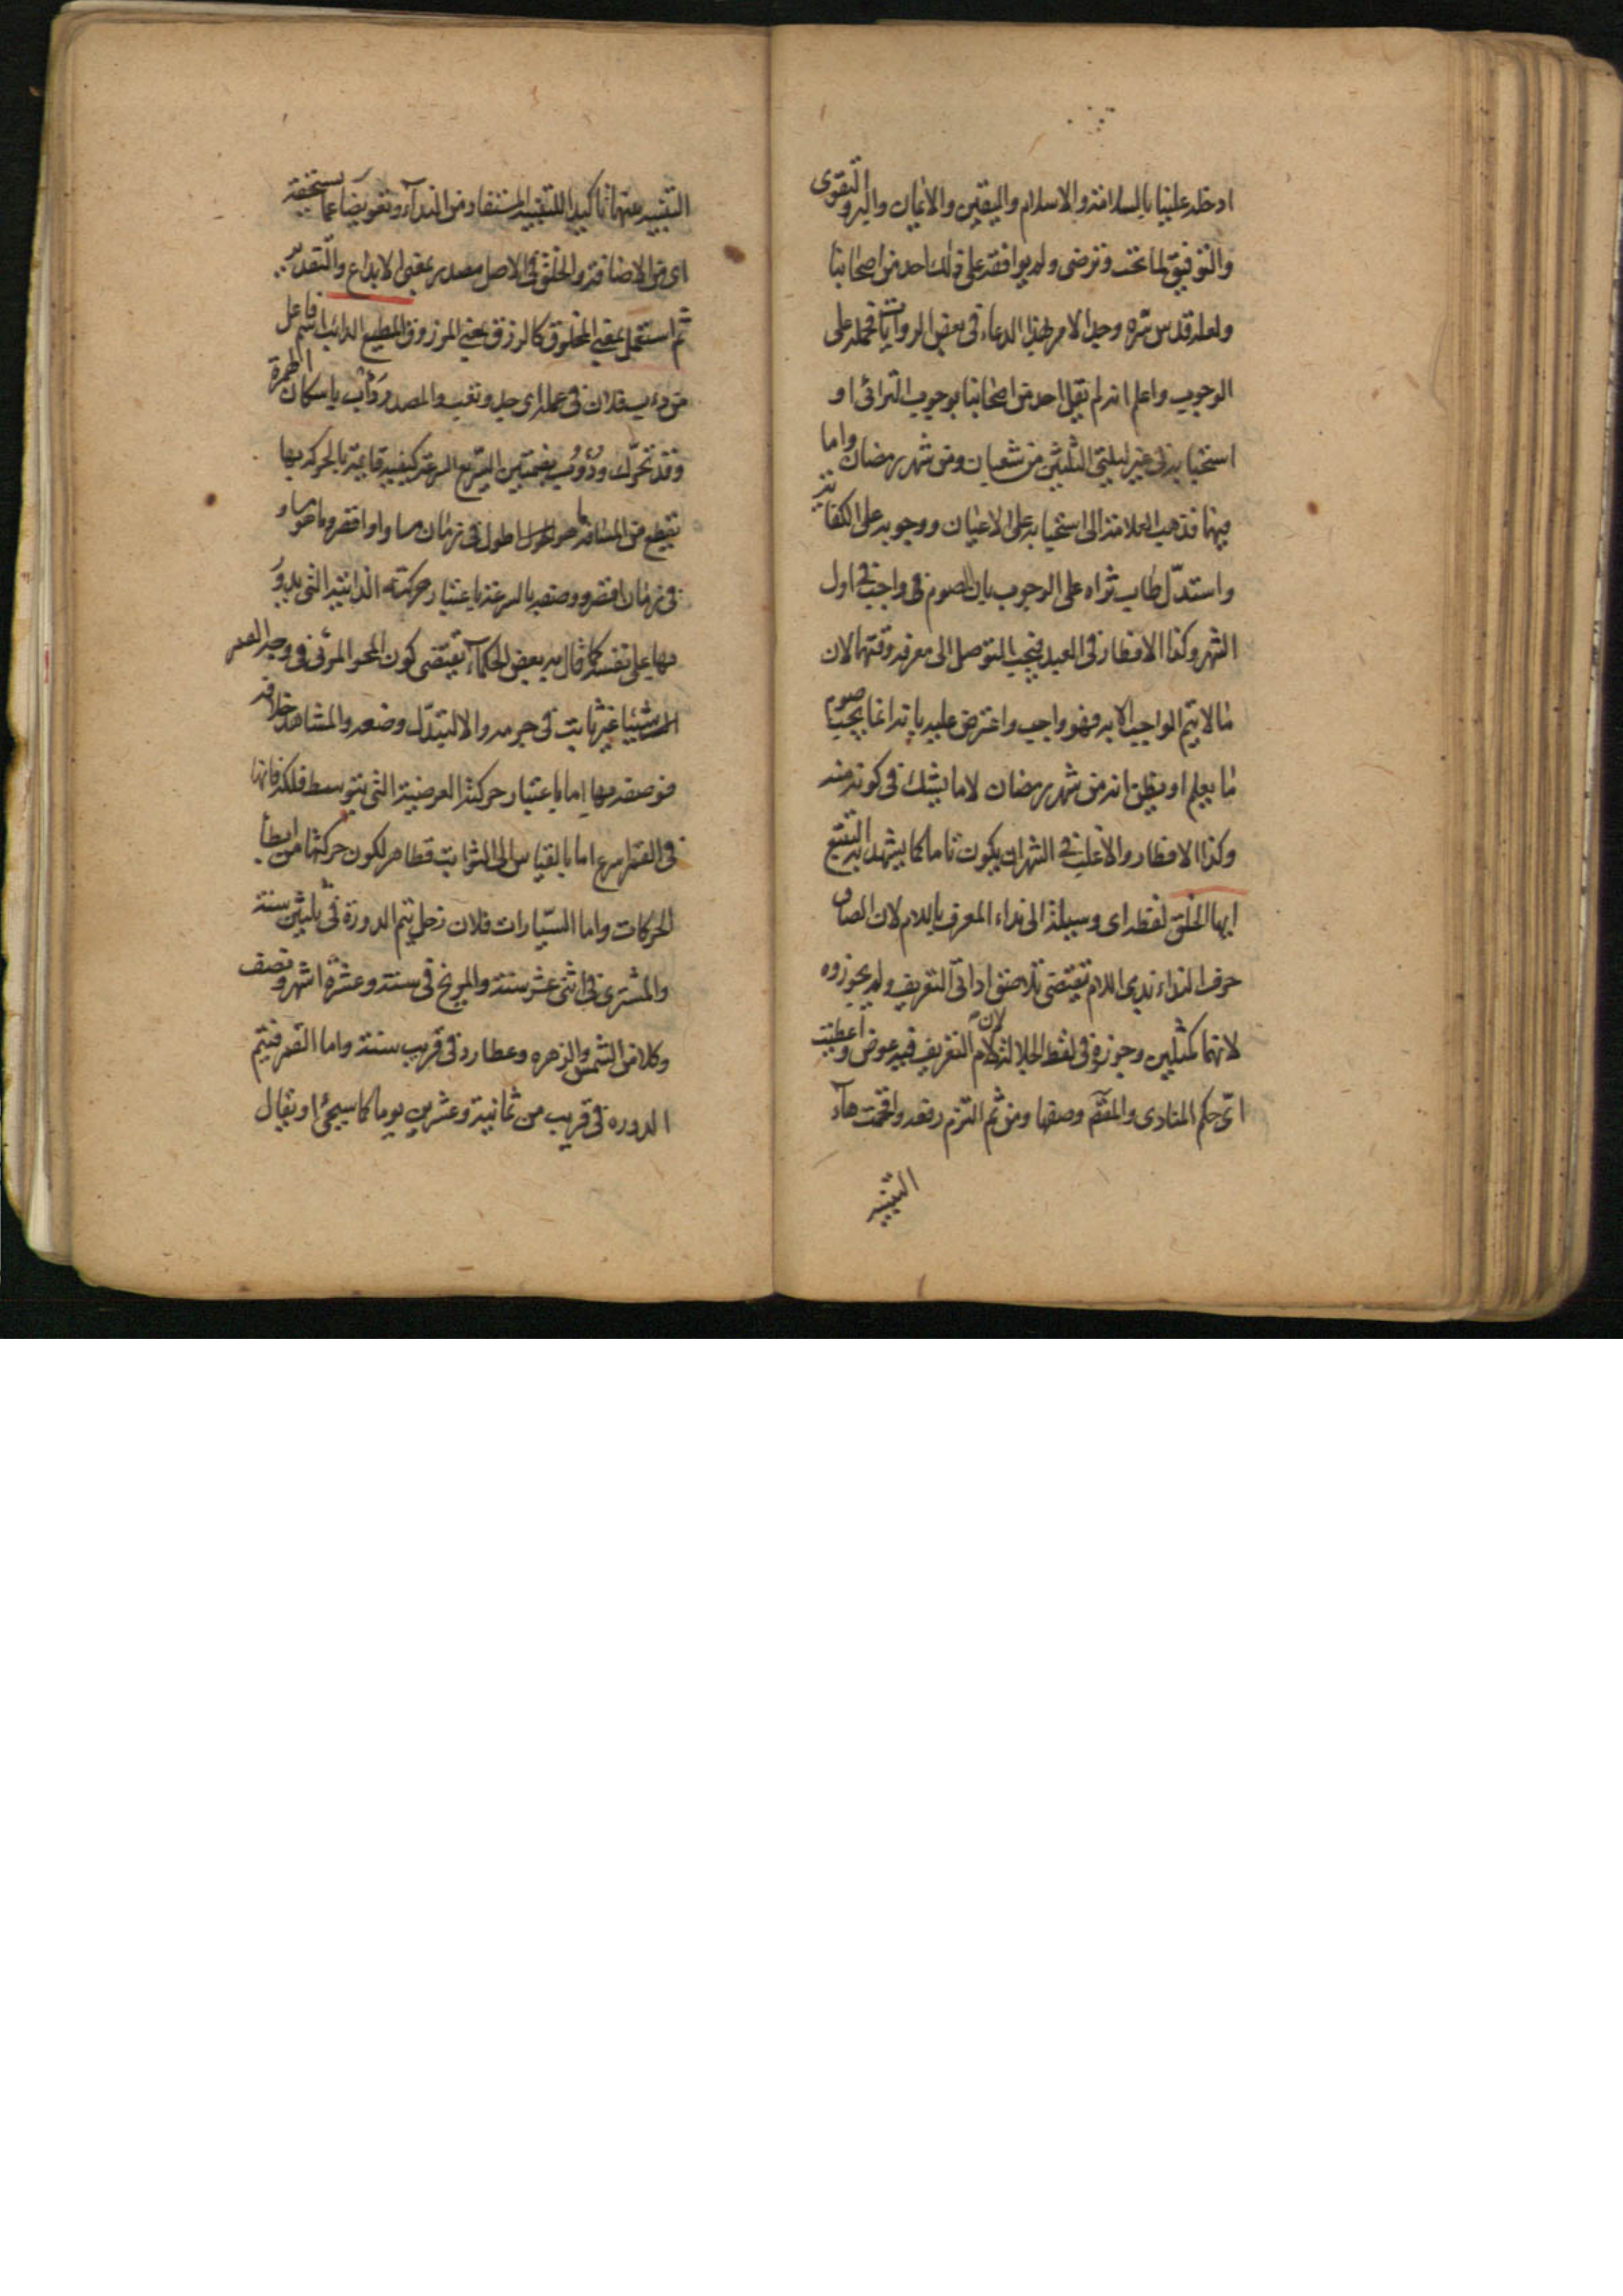 ادخله علينا بالسلامة والاسلام واليقين والايمان والبر والتقوى
والتوفيق لما تحب وترضى ولم يوافقه على ذلك احد من اصحابنا
ولعله قدس سره وجد الامر بهذا الدعاء فى بعض الروايات فحمله على
الوجوب واعلم انه لم يقل احد من اصحابنا بوجوب الترائى او
استحبابه فى غير ليلتى الثلثين من شعبان ومن شهر رمضان واما
فيهما فذهب العلامة الى استحبابه على الاعيان ووجوبه على الكفاية
واستدل طاب ثراه على الوجوب بان الصوم فى واجب فى اول
الشهر وكذا الافطار فى العيد فيجب التوصل الى معرفة وقتهما لان
ما لا يتم الواجب الا به فهو واجب واعترض عليه بانه انما يجب صوم
ما يعلم او يظن انه من شهر رمضان لا ما يشك فى كونه منه
وكذا الافطار والاغلب فى الشهر ان يكون تاما كما يشهد به التتبع
ايها الخلق لفظه اى وسيلة الى نداء المعرف باللام لان الصاق
حرف النداء بذى اللام تقتضى تلاصق اداتى التعريف ولم يجوزوه
لانهما كمثلين وجوزه فى لفظ الجلالة لان لام التعريف فيه عوض واعطيت
اى حكم المنادى والمقسم وصفها ومن ثم التزم رفعه واقحمت هاء
التنبيه
التنبيه بينهما تاكيدا للتنبيه المستفاد من النداء وتعويضا عما يستحقه
اى من الاضافة والخلق فى الاصل مصدر بمعنى الابداع والتقدير
ثم استعمل بمعنى المخلوق كالرزق بمعنى المرزوق المطيع الدائب اسم فاعل
من دءب فلان فى عمله اى جد وتعب والمصدر دَأْب باسكان الهمزة
وقد تحرّك ودُؤُوب بضمتين السريع السرعة كيفية قائمة بالحركة بها
تقطع من المسافة ما هو اطول فى زمان مساو او اقصر وما هو مساو
فى زمان اقصر ووصفه بالسرعة باعتبار حركته الذاتية التى يدور
بها على نفسه كما قال به بعض الحكماء تقتضى كون المحو المرئى فى وجه القمر
شيئا غير ثابت فى جرمه والا لتبدّل وضعه والمشاهد خلافه
فوصفه بها اما باعتبار حركته العرضية التى بتوسط فلكه فانها
فى القمر اسرع اما بالقياس الى الثوابت فظاهر لكون حركتها من ابطأ
الحركات واما السيّارات فلان زحل يتم الدورة فى ثلثين سنة
والمشترى فى اثنى عشر سنة والمريخ فى سنة وعشرة اشهر ونصف
وكلا من الشمس والزهره وعطارد فى قريب سنة واما القمر فيتم
الدوره فى قريب من ثمانية وعشرين يوما كما سيجئ او يقال